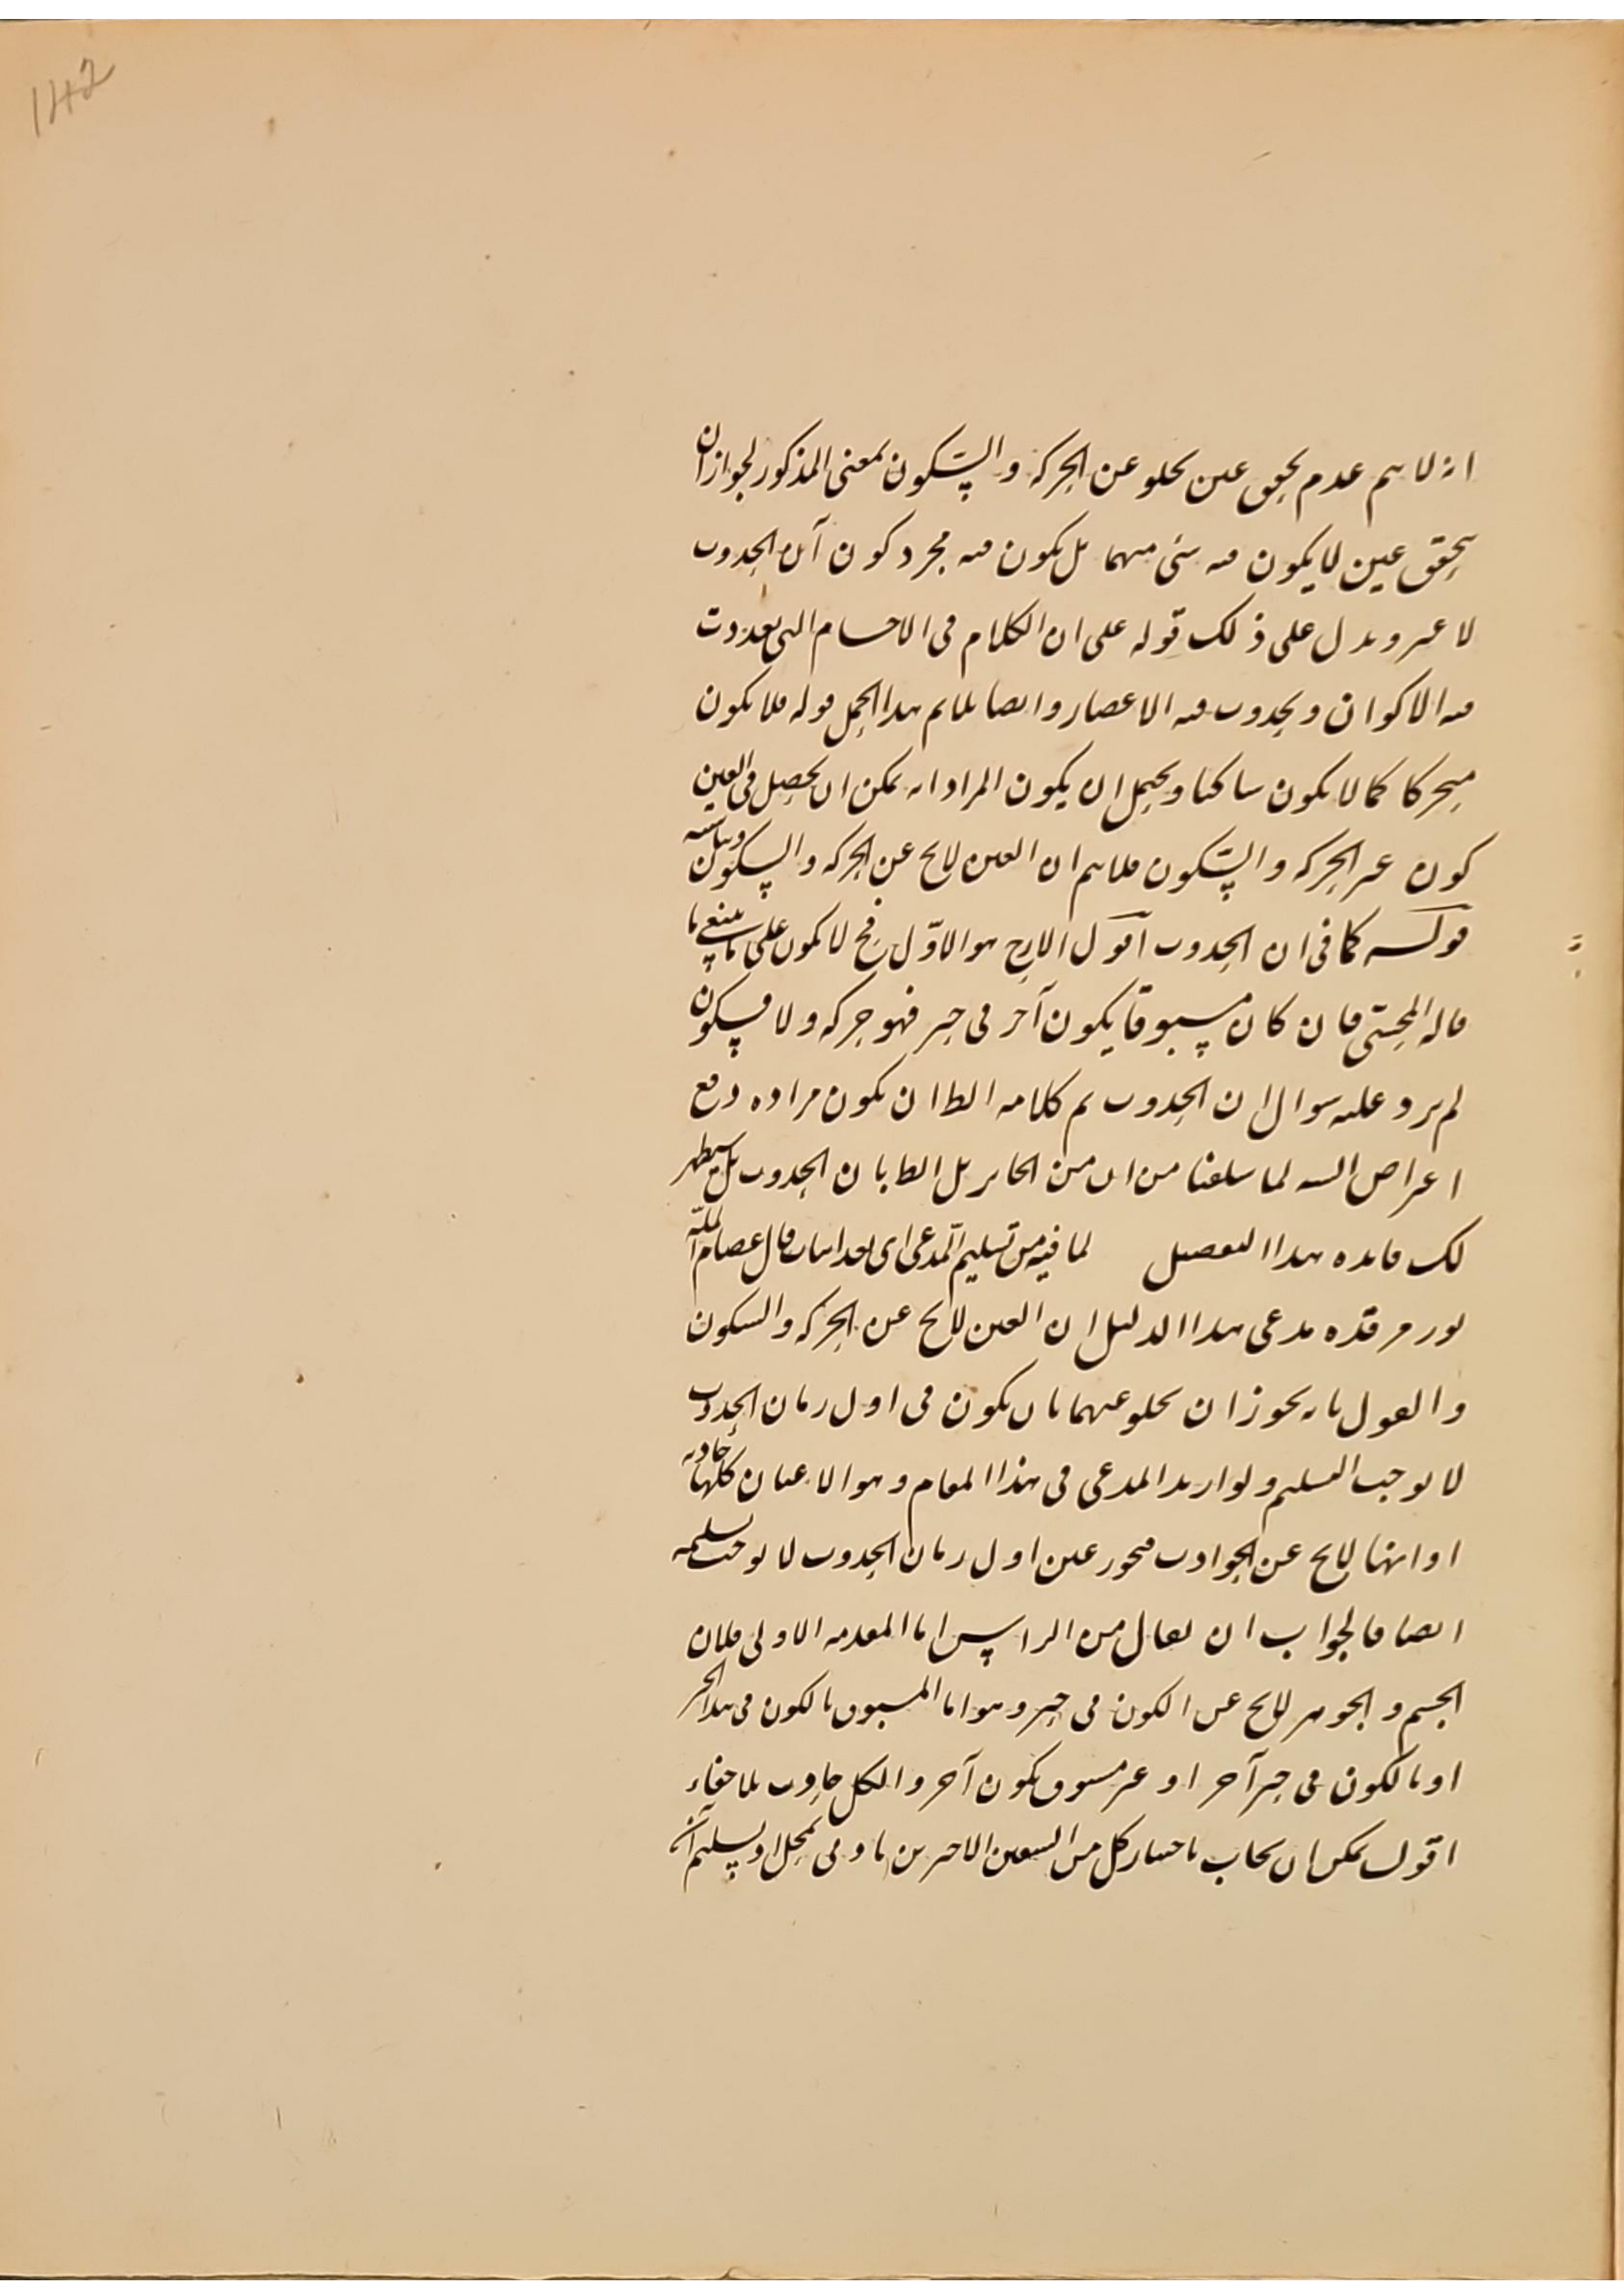 142
انه لا نم عدم تحقق عين يخلو عن الحركه و السكون بمعنى المذكور لجواز ان
يتحقق عين لا يكون فيه شئ منهما بل يكون فيه مجرد كون آن الحدوث
لا غير و يدل على ذلك قوله على ان الكلام فى الاجسام التى تعددت
فيه الاكوان و تجددت فيه الاعصار و ايضا يلايم هذا الحمل قوله فلا يكون
متحركا كما لا يكون ساكنا و يحتمل ان يكون المراد انه يمكن ان يحصل فى العين
كون غير الحركه و السكون فلا نم ان العين لا يخ عن الحركه و السكون
قوله كما فى ان الحدوث اقول الارجح هو الاول فح لا يكون على ما ينبغى ما
قاله المحشى فان كان مسبوقا بكون آخر فى حيز فهو حركه و لا فسكون
لم يرد عليه سوال ان الحدوث ثم كلامه الظ ان يكون مراده دفع
اعتراض اليه لما سلفنا من ان من الجايز بل الظ بان الحدوث بل سيظهر
لك فايده هذا التفصيل لما فيه من تسليم المدعى اى بعد اثبات قال عصام المله
نور مرقده مدعى هذا الدليل ان العين لا يخ عن الحركه و السكون
و القول بانه يجوز ان يخلو عنهما بان يكون فى اول زمان الحدوث
لا يوجب التسليم و لو اريد المدعى فى هذا المقام و هو الاعيان كلها حادثه
او انها لا يخ عن الحوادث فتجويز عين اول زمان الحدوث لا يوجب تسليمه
ايضا فالجواب ان يقال من الراس اما المقدمه الاولى فلان
الجسم و الجوهر لا يخ عن الكون فى حيز و هو اما المسبوق بالكون فى هذا الحيز
او بالكون فى حيز آخر او غير مسبوق بكون آخر و الكل حادث بلا خفاء
اقول يمكن ان يجاب باختيار كل من الشقين الاخيرين بادنى تمحل او تسليم ان